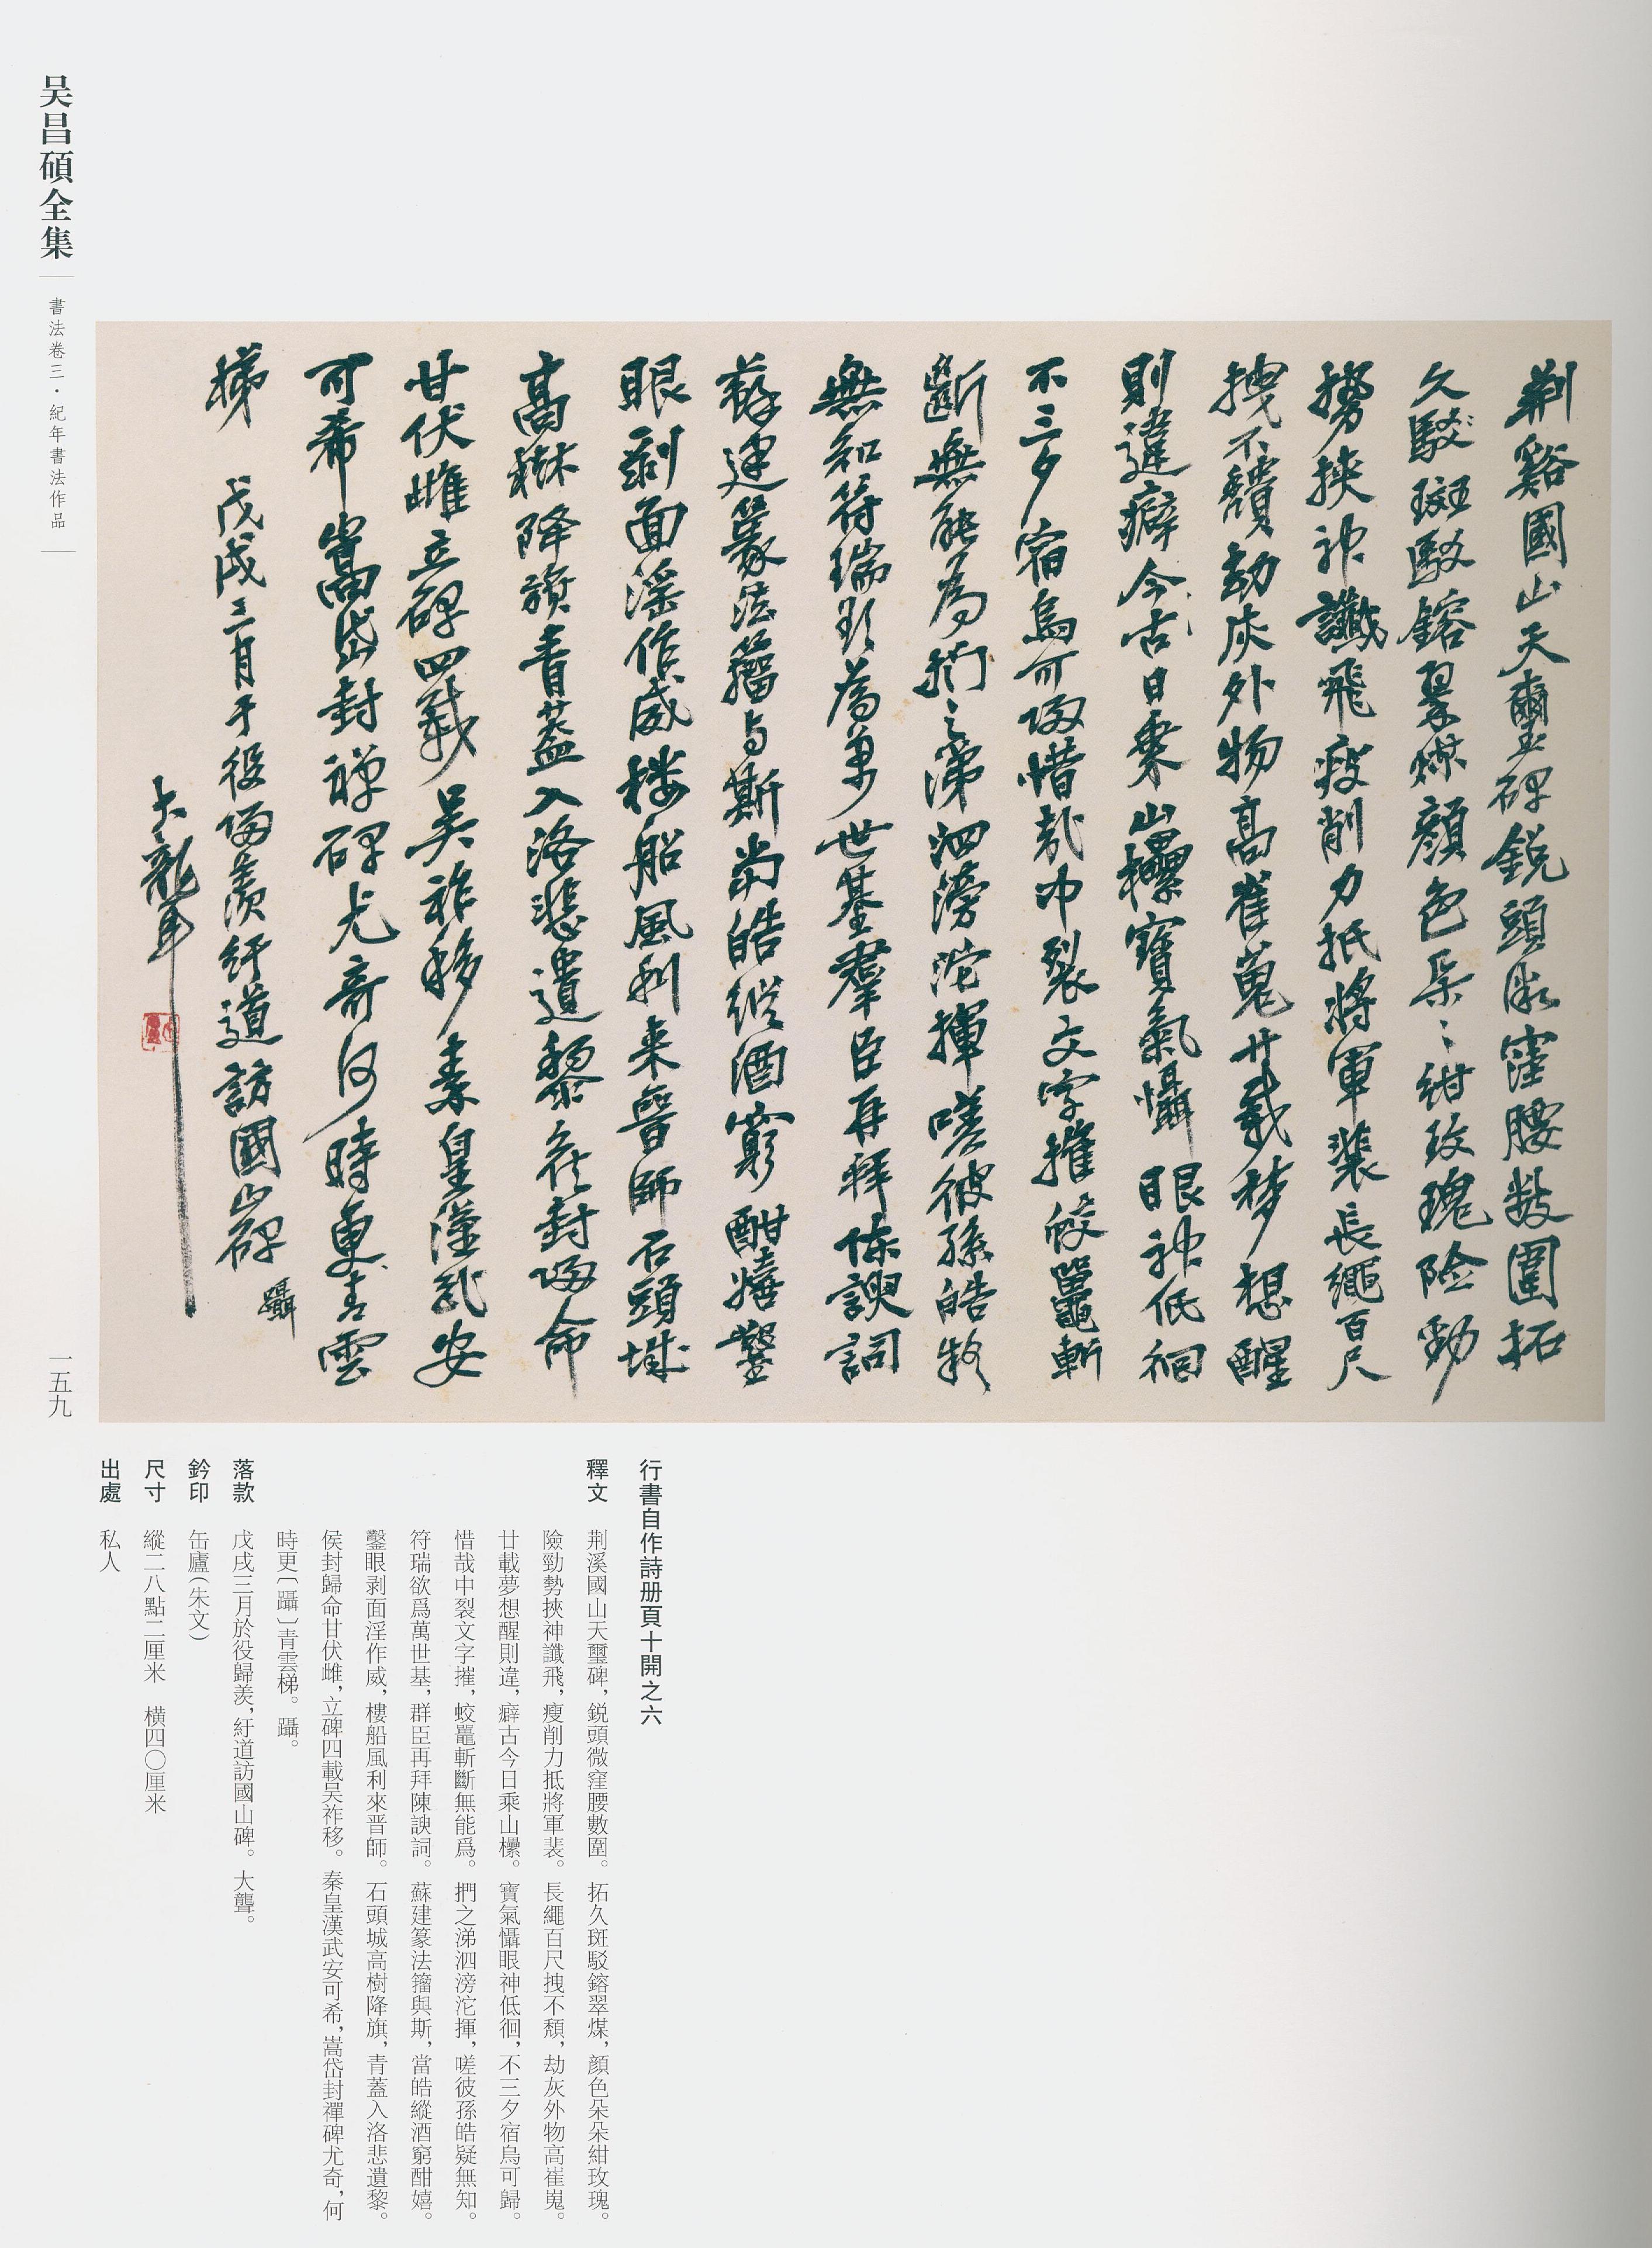 荆谿國山天璽碑鋭頭微窪腰數圍拓
久駁斑駁鎔翠煤顏色朵〻紺玫瑰險勁
勢挾神讖飛瘦削力抵將軍裴長繩百尺
拽不頽劫灰外物高崔嵬廿載梦想醒
則違癖今古日乘山欙寶氣懾眼神低徊
不三夕宿烏可歸惜哉中裂文字摧蛟鼉斬
斷無能為捫之涕泗滂沱揮嗟彼孫皓疑
無知符瑞欲為萬世基羣臣再拜陳諛詞
蘇建篆法籀与斯當皓縱酒窮酣嬉鑿
眼剥面淫作威楼船風利来晉師石頭城
高樹降旗青蓋入洛悲遺黎矦封歸命
甘伏雌立碑四載吴祚移秦皇漢武安
可希嵩岱封禅碑尤奇何時更青雲
梯 戊戌三月于役歸羡紆道訪國山碑 躡
大聾
吴昌碩全集
書法卷三·紀年書法作品
一五九
行書自作詩册頁十開之六
釋文 荆溪國山天璽碑，鋭頭微窪腰數圍。拓久斑駁鎔翠煤，顔色朵朵紺玫瑰。
險勁勢挾神讖飛，瘦削力抵將軍裴。長繩百尺拽不頽，劫灰外物高崔嵬。
廿載夢想醒則違，癖古今日乘山欙。寶氣懾眼神低徊，不三夕宿烏可歸。
惜哉中裂文字摧，蛟鼉斬斷無能爲。捫之涕泗滂沱揮，嗟彼孫皓疑無知。
符瑞欲爲萬世基，群臣再拜陳諛詞。蘇建篆法籀與斯，當皓縱酒窮酣嬉。
鑿眼剥面淫作威，樓船風利來晋師。石頭城高樹降旗，青蓋入洛悲遺黎。
侯封歸命甘伏雌，立碑四載吴祚移。秦皇漢武安可希，嵩岱封禪碑尤奇，何
時更〔躡〕青雲梯。躡。
落款 戊戌三月於役歸羡，紆道訪國山碑。大聾。
鈐印 缶廬（朱文）
尺寸 縱二八點二厘米 橫四〇厘米
出處 私人